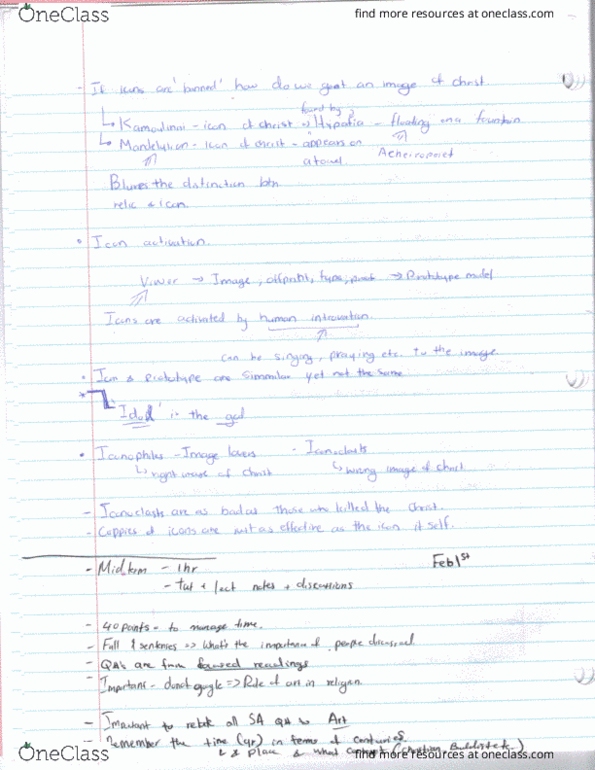 OneClass
find more resources at oneclass.com
- If icons are 'banned' how do we get an image of christ.
found by
↳ Kamoulinai - icon of christ → Hypatia - floating on a fountain
↳ Mandelution - icon of christ - appears on
a towel. Acheiropoiet
Blurres the distinction btn
relic & icon.
• Icon activation.
Viewer → Image, offprint, type, → Prototype model
Icons are activated by human
can be singing, praying etc. to the image.
• Icon & prototype are Simmilar yet not the same.
* 'Idol' is the god
• Iconophiles - Image lovers - Iconoclasts
↳ right image of christ ↳ wrong image of christ.
- Iconoclasts are as bad as those who killed the Christ.
- Coppies of icons are just as effective as the icon it self.
- Midterm - 1hr Feb 1st
- + lect notes + discussions
- 40 points - to manage time.
- Full sentences => What's the importance of people discussed.
- are from focused readings
- Important - donot google => Role of art in religion.
- Important to relate all SA to Art
- Remember the time (yr) in terms of centuries.
↳ & place & what context (christian, Buddist etc)
OneClass
find more resources at oneclass.com